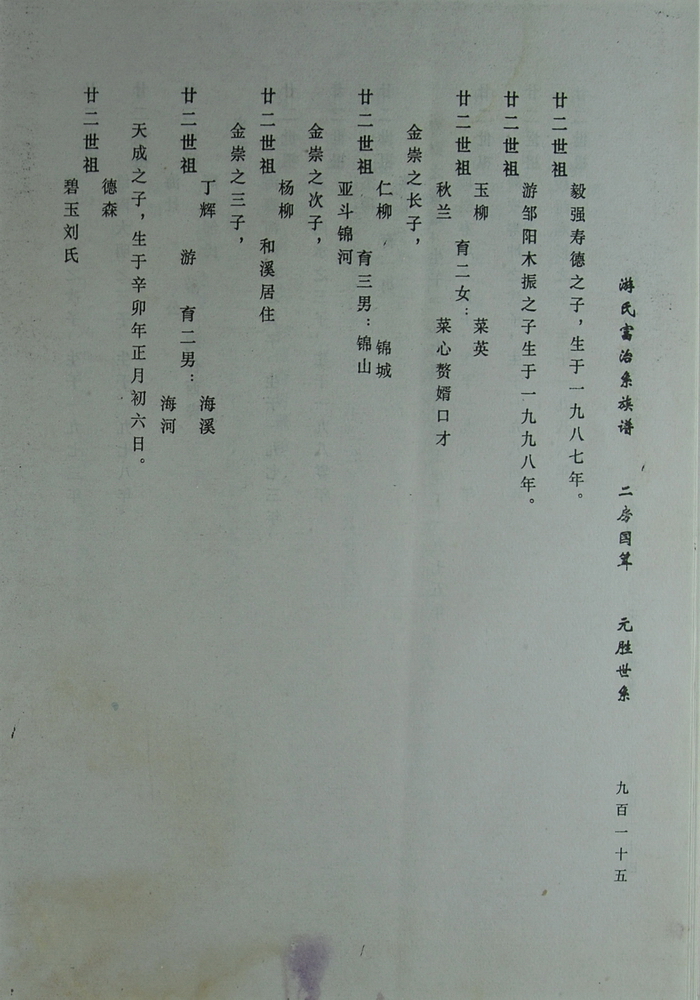 游氏富治系族谱 二房国算 元胜世系 九百一十五
廿二世祖 毅强寿德之子，生于一九八七年。
廿二世祖 游邹阳木振之子生于一九九八年。
廿二世祖 玉柳 秋兰 育二女： 菜英 菜心赘婿口才
金崇之长子，
廿二世祖 仁柳 亚斗锦河 育三男： 锦城 锦山
金崇之次子，
廿二世祖 杨柳 和溪居住
金崇之三子，
廿二世祖 丁辉 游 育二男： 海溪 海河
天成之子，生于辛卯年正月初六日。
廿二世祖 德森 碧玉刘氏